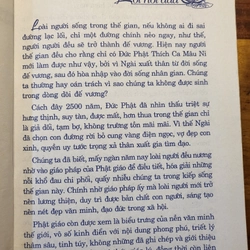 Lời nói đầu
Loài người sống trong thế gian, nếu không ai đi sai
đường lạc lối, chỉ một đường chính nẻo ngay, như thế,
người người đều sẽ trở thành đế vương. Hiện nay người
thế gian đều cho rằng chỉ có Đức Phật Thích Ca Mâu Ni
mới làm được như vậy, bởi vì Ngài xuất thân từ dòng dõi
đế vương, sau đó hòa nhập vào đời sống nhân gian. Chúng
ta có thể trách cứ rằng chính vì sao chúng ta không được sinh
trong dòng dõi đế vương?
Cách đây 2500 năm, Đức Phật đã nhìn thấu triệt sự
hưng thịnh, suy tàn, được mất, hơn thua trong thế gian chỉ
là giả dối, tạm bợ, không trường tồn mãi mãi. Vì thế Ngài
đã chọn con đường rời bỏ cung vàng điện ngọc, vợ đẹp con
xinh, quyền uy tước trọng xả thân xuất gia tìm đạo.
Chúng ta đã biết, mấy ngàn năm nay loài người đều nương
nhờ vào giáo pháp của Phật giáo để điều tiết, hóa giải những
nỗi khổ đau chi phối, quấy nhiễu chúng ta trong kiếp sống
thế gian này. Chính nhờ giáo pháp ấy mà loài người mới trở
nên lương thiện, duy trì được bản chất con người, sáng tạo
nên nét đẹp văn minh, đạo đức trong xã hội.
Phật giáo còn được xem là biểu trưng của nền văn minh
thế giới, với toàn diện nội dung phong phú, triết lý
thâm sâu, tinh túy, không những đã ghi chép và giới thiệu